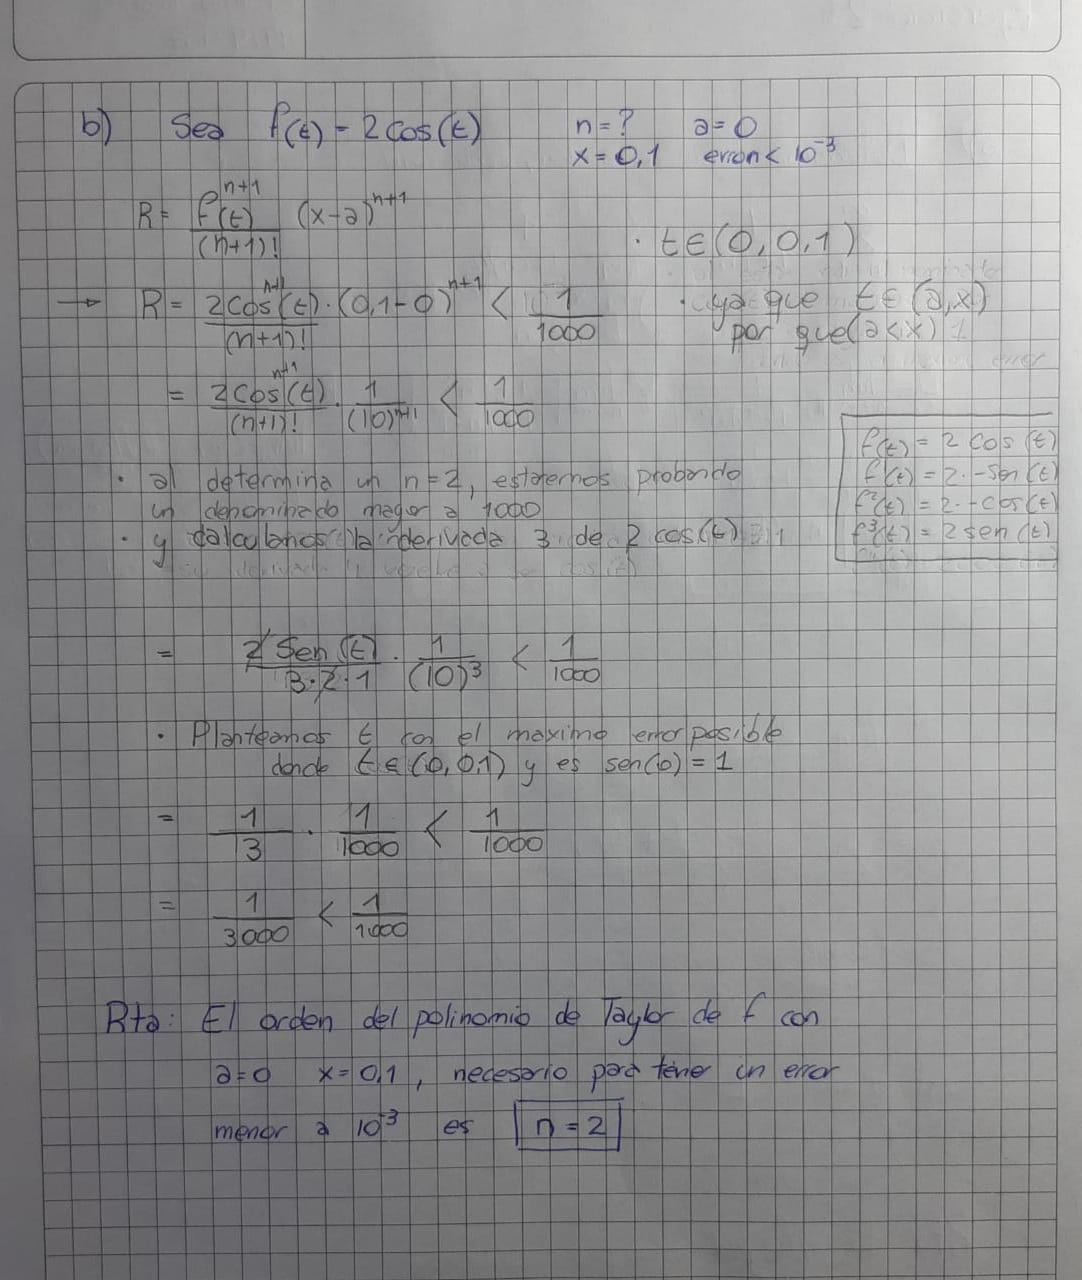 b) Sea f(t) = 2 cos(t) n = ? a = 0
x = 0,1 error < 10^-3
R = f^(n+1)(t) / (n+1)! (x-a)^(n+1)
· t ∈ (0, 0,1)
→ R = 2cos^(n+1)(t) / (n+1)! · (0,1-0)^(n+1) < 1/1000 · ya que t ∈ (a,x)
por que (a<x)
= 2cos^(n+1)(t) / (n+1)! · 1/(10)^(n+1) < 1/1000
f(t) = 2 cos(t)
f'(t) = 2·-sen(t)
f²(t) = 2·-cos(t)
f³(t) = 2 sen(t)
· al determina un n=2, estaremos probando
un denominado mayor a 1000
· y calculamos la derivada 3 de 2 cos(t)
= 2 Sen(t) / 3·2·1 · 1/(10)³ < 1/1000
· Planteamos t con el maximo error posible
donde t ∈ (0, 0,1) y es sen(0) = 1
= 1/3 · 1/1000 < 1/1000
= 1/3000 < 1/1000
Rta: El orden del polinomio de Taylor de f con
a=0 x=0,1, necesario para tener un error
menor a 10^-3 es n = 2